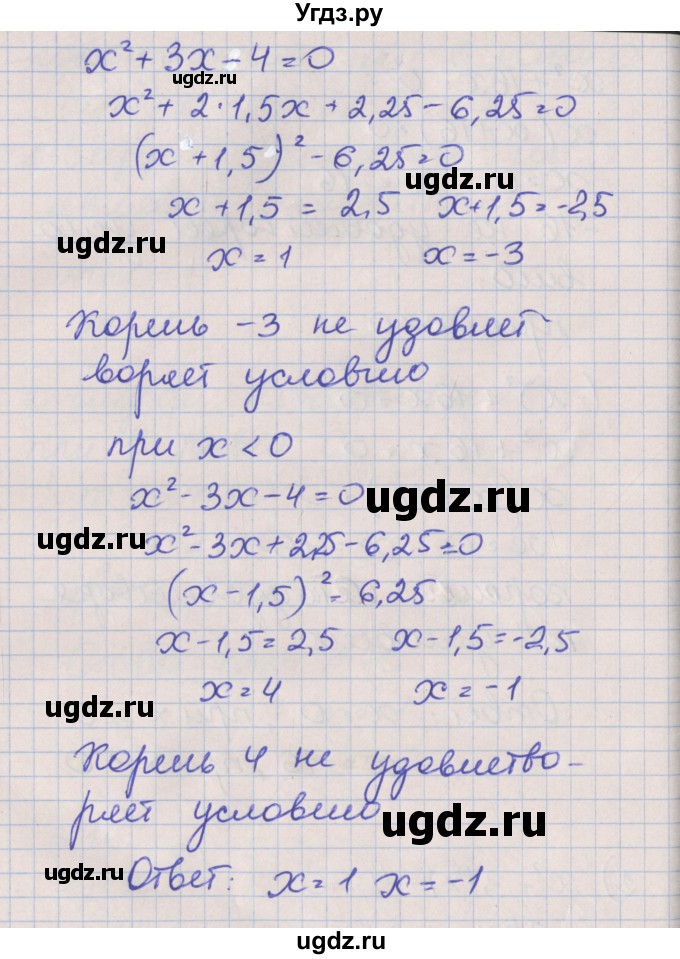 Угдз.ру
x² + 3x - 4 = 0
ugdz.ru
x² + 2·1,5x + 2,25 - 6,25 = 0
(x + 1,5)² - 6,25 = 0
ugdz.ru
x + 1,5 = 2,5 x + 1,5 = -2,5
ugdz.ru
x = 1 x = -3
Корень -3 не удовлет-
воряет условию
при x < 0
x² - 3x - 4 = 0
ugdz.ru
ugdz.ru
x² - 3x + 2,25 - 6,25 = 0
(x - 1,5)² = 6,25
x - 1,5 = 2,5 x - 1,5 = -2,5
x = 4 x = -1
ugdz.ru
Корень 4 не удовлетво-
ряет условию
ugdz.ru
Ответ: x = 1 x = -1
ugdz.ru
ugdz.ru